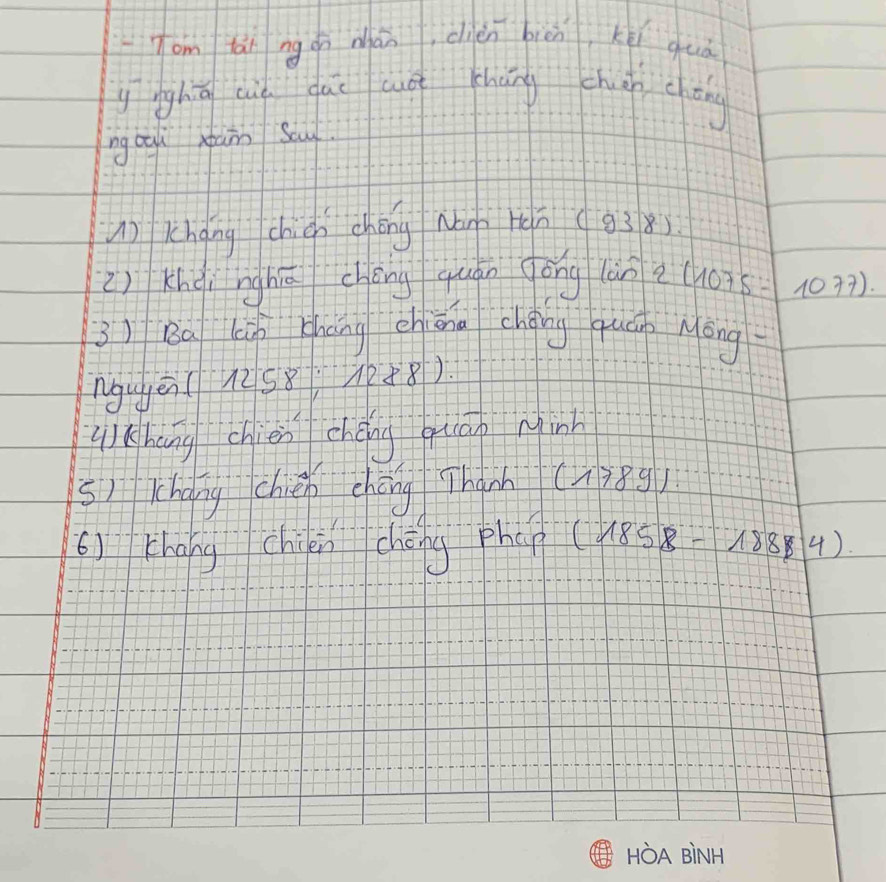 - Tóm tắt nguyên nhân, diễn biến, kết quả,
ý nghĩa của các cuộc kháng chiến chống
ngoại xâm sau.
1) Kháng chiến chống Nam Hán (938).
2) Khởi nghĩa chống quân Tống lần 2 (1075 - 1077).
3) Ba lần kháng chiến chống quân Mông -
Nguyên ( 1258 ; 1288 ).
4) Kháng chiến chống quân Minh
5) Kháng chiến chống Thanh (1789)
6) Kháng chiến chống Pháp (1858 - 1884).
HÒA BÌNH